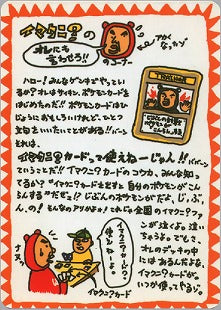 イマクニ？の
オレにも
言わせろ!!
のコーナー
アカく
なったゾ
ハロー！みんなゲンキでやってい
るか？オレはサイキン、ポケモンカードを
はじめたのだ!!ポケモンカードはて
じょうにおもしろいけれど、ひとつ
文句をいいたいことがある!!ババーン
それは、
イマクニ？カードって使えねーじゃん!!ババーン
ということだ!!イマクニ？カードのコウカ、みんな知っ
てるか？"イマクニ？カードをだすと自分のポケモンがこん
らんする"だぜ。じ？じぶんのポケモンがだよ、じ、ぶ、
ん、の！そんなのアリかよ!これじゃ全国のイマクニ？ファ
イマクニ？
カードの
使えねーよ。
ンが泣くよ。泣い
ちゃうよ。でもさ、
オレのデッキの中
には あるんだよな、
イマクニ？カードが
いつか使ってやるゾ。
イマクニ？カード